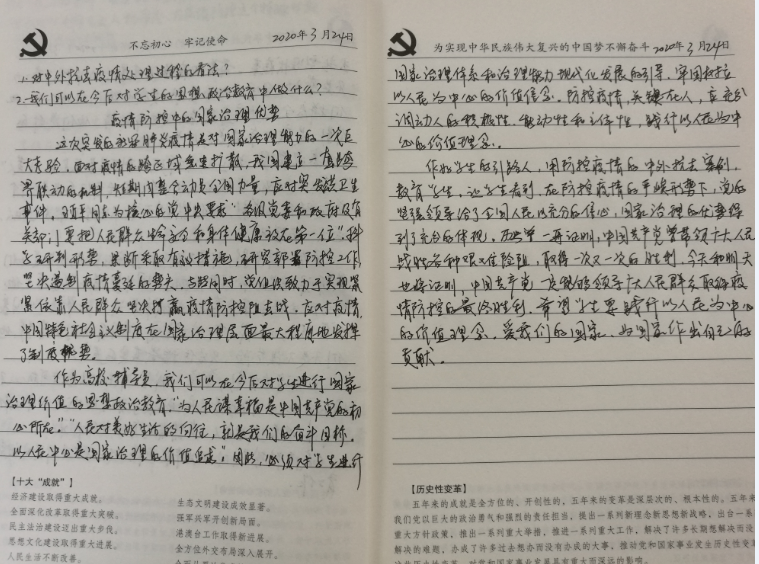 不忘初心 牢记使命 2020年3月24日
1.对中外抗击疫情处理过程的看法？
2.我们可以在今后对学生的思想政治教育中做什么？
疫情防控中的国家治理优势
这次突发的新冠肺炎疫情是对国家治理能力的一次巨
大考验，面对疫情的跨区域发生扩散，我国建立一套跨
界联动的机制，短期内集合动员全国力量，应对突发公共卫生
事件。习近平同志为核心的党中央要求“各级党委和政府及有
关部门要把人民群众生命安全和身体健康放在第一位”，科
学研判形势，果断采取有效措施，研究部署防控工作，
坚决遏制疫情蔓延的势头，与此同时，党组织致力于实现紧
紧依靠人民群众坚决打赢疫情防控阻击战，应对疫情，
中国特色社会主义制度在国家治理层面最大程度地发挥
了制度优势。
作为高校辅导员，我们可以在今后对学生进行国家
治理价值的思想政治教育，“为人民谋幸福是中国共产党的初
心所在”“人民对美好生活的向往，就是我们的奋斗目标。
以人民中心是国家治理的价值追求”。因此，必须对学生进行
【十大“成就”】
经济建设取得重大成就。
全面深化改革取得重大突破。
民主法治建设迈出重大步伐。
思想文化建设取得重大进展。
人民生活不断改善。
生态文明建设成效显著。
强军兴军开创新局面。
港澳台工作取得新进展。
全方位外交布局深入展开。
为实现中华民族伟大复兴的中国梦不懈奋斗 2020年3月24日
国家治理体系和治理能力现代化发展的引导，牢固树立
以人民为中心的价值信念。防控疫情，关键在人，应充分
调动人的积极性、能动性和主体性，践行以人民为中
心的价值理念。
作为学生的引路人，用防控疫情的中外抗击案例，
教育学生，让学生看到，在防控疫情的严峻形势下，党的
坚强领导给了全国人民以充分的信心，国家治理的优势得
到了充分的体现。历史一再证明，中国共产党带领广大人民
战胜各种艰难险阻，取得一次又一次的胜利，今天和明天
也将证明，中国共产党一定能够领导广大人民群众取得疫
情防控的最终胜利，希望学生要践行以人民为中心
的价值理念，爱我们的国家，为国家作出自己的
贡献。
【历史性变革】
五年来的成就是全方位的、开创性的，五年来的变革是深层次的、根本性的。五年来，
我们党以巨大的政治勇气和强烈的责任担当，提出一系列新理念新思想新战略，出台一系
重大方针政策，推出一系列重大举措，推进一系列重大工作，解决了许多长期想解决而没
解决的难题，办成了许多过去想办而没有办成的大事，推动党和国家事业发生历史性变革